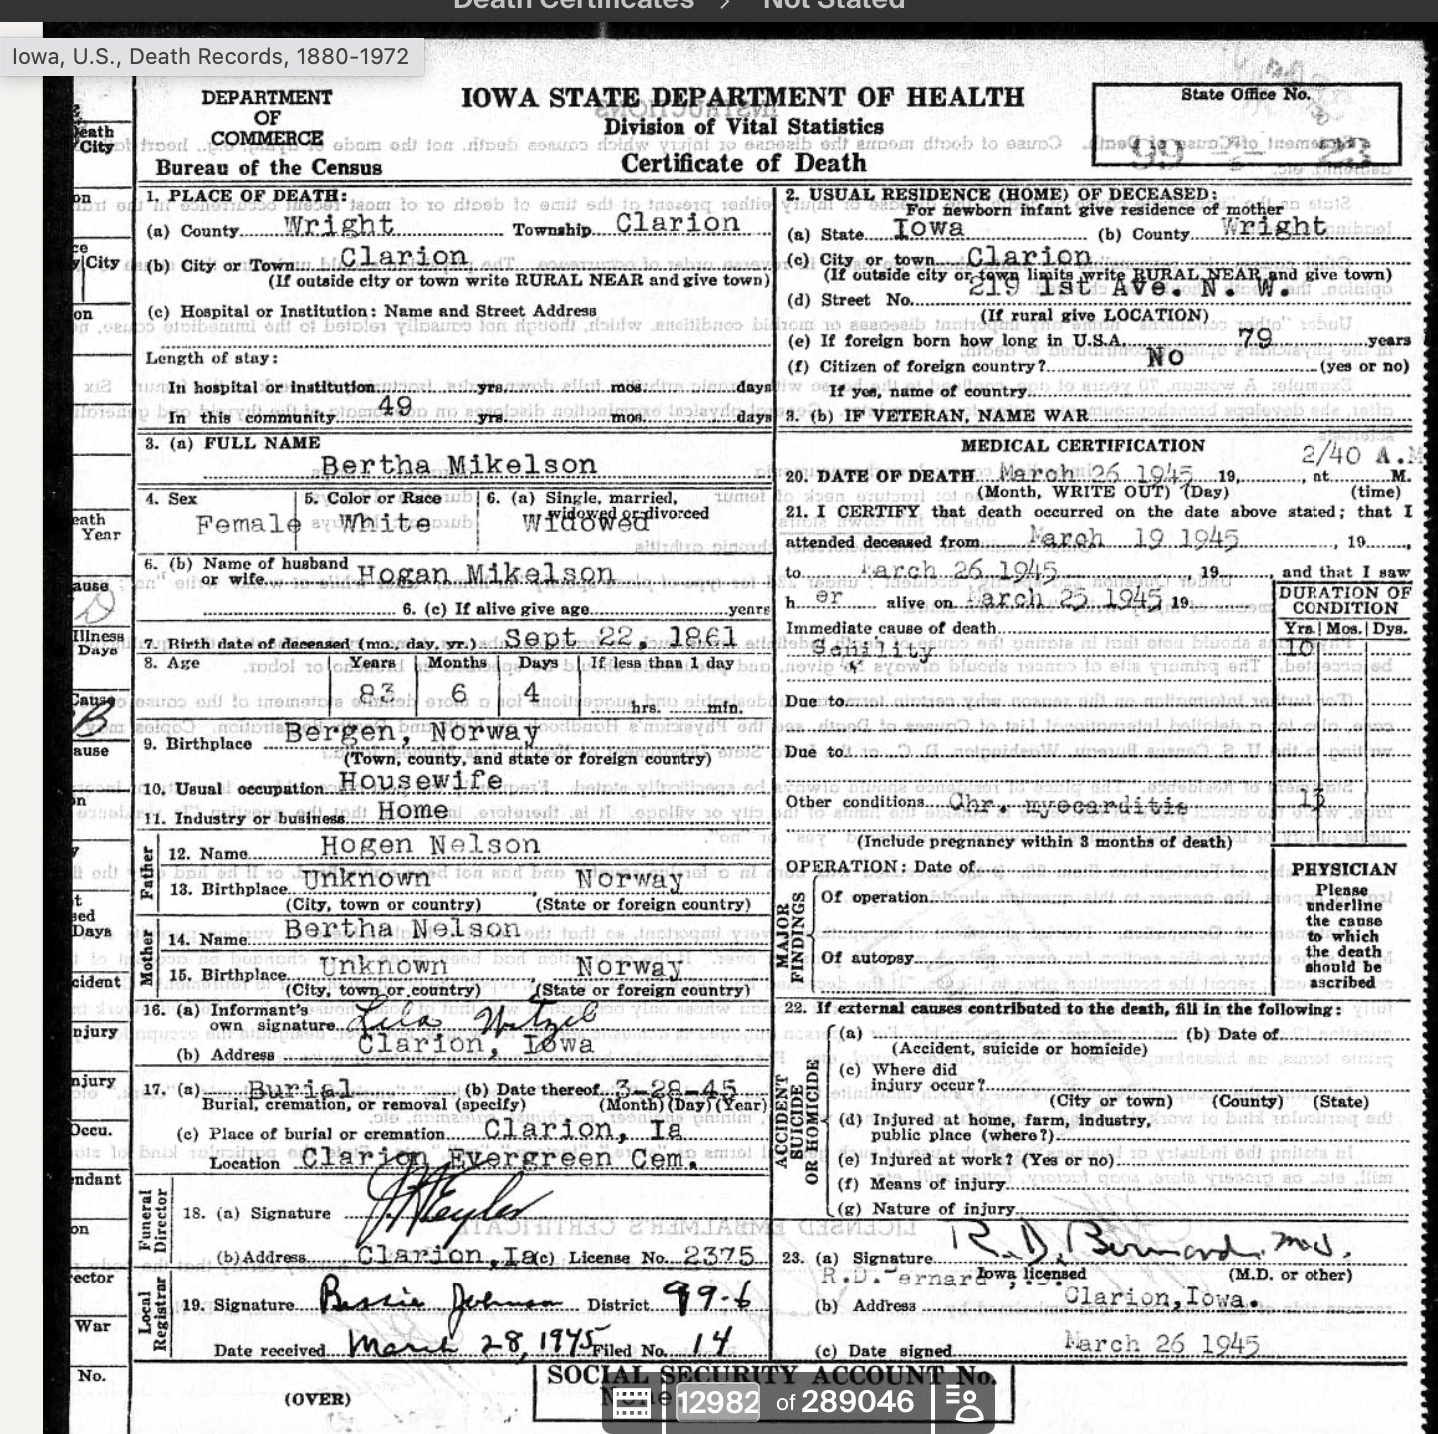 Death Certificates > Not Stated
Iowa, U.S., Death Records, 1880-1972
DEPARTMENT OF COMMERCE
Bureau of the Census
IOWA STATE DEPARTMENT OF HEALTH
Division of Vital Statistics
Certificate of Death
State Office No.
99 - 23
1. PLACE OF DEATH:
(a) County Wright Township Clarion
(b) City or Town Clarion
(If outside city or town write RURAL NEAR and give town)
(c) Hospital or Institution: Name and Street Address
Length of stay:
In hospital or institution yrs. mos. days
In this community 49 yrs. mos. days
2. USUAL RESIDENCE (HOME) OF DECEASED:
For newborn infant give residence of mother
(a) State Iowa (b) County Wright
(c) City or town Clarion
(If outside city or town limits write RURAL NEAR and give town)
(d) Street No. 219 1st Ave. N. W.
(If rural give LOCATION)
(e) If foreign born how long in U.S.A. 79 years
(f) Citizen of foreign country? No (yes or no)
If yes, name of country
3. (b) IF VETERAN, NAME WAR
3. (a) FULL NAME
Bertha Mikelson
4. Sex Female
5. Color or Race White
6. (a) Single, married, widowed or divorced Widowed
6. (b) Name of husband or wife Hogan Mikelson
6. (c) If alive give age years
7. Birth date of deceased (mo., day, yr.) Sept 22, 1861
8. Age Years Months Days If less than 1 day
83 6 4 hrs. min.
9. Birthplace Bergen, Norway
(Town, county, and state or foreign country)
10. Usual occupation Housewife
11. Industry or business Home
Father
12. Name Hogen Nelson
13. Birthplace Unknown, Norway
(City, town or country) (State or foreign country)
Mother
14. Name Bertha Nelson
15. Birthplace Unknown, Norway
(City, town or country) (State or foreign country)
16. (a) Informant's own signature
(b) Address Clarion, Iowa
17. (a) Burial (b) Date thereof 3-28-45
Burial, cremation, or removal (specify) (Month) (Day) (Year)
(c) Place of burial or cremation Clarion, Ia
Location Clarion Evergreen Cem.
Funeral Director
18. (a) Signature
(b) Address Clarion, Ia (c) License No. 2375
Local Registrar
19. Signature Bessie Johnson District 99-6
Date received March 28, 1945 Filed No. 14
MEDICAL CERTIFICATION
2/40 A.M
20. DATE OF DEATH March 26 1945 19, at M.
(Month, WRITE OUT) (Day) (time)
21. I CERTIFY that death occurred on the date above stated; that I
attended deceased from March 19 1945, 19,
to March 26 1945 19, and that I saw
h er alive on March 25 1945 19
DURATION OF CONDITION
Yrs. Mos. Dys.
Immediate cause of death
Senility 10
Due to
Due to
Other conditions Chr. myocarditis
(Include pregnancy within 3 months of death)
MAJOR FINDINGS
OPERATION: Date of
Of operation
Of autopsy
PHYSICIAN
Please underline the cause to which the death should be ascribed
22. If external causes contributed to the death, fill in the following:
ACCIDENT SUICIDE OR HOMICIDE
(a) (b) Date of
(Accident, suicide or homicide)
(c) Where did injury occur?
(City or town) (County) (State)
(d) Injured at home, farm, industry, public place (where?)
(e) Injured at work? (Yes or no)
(f) Means of injury
(g) Nature of injury
23. (a) Signature R. D. Bernard, M.D.
R.D. Bernard Iowa licensed (M.D. or other)
(b) Address Clarion, Iowa.
(c) Date signed March 26 1945
SOCIAL SECURITY ACCOUNT No.
None
(OVER)
12982 of 289046